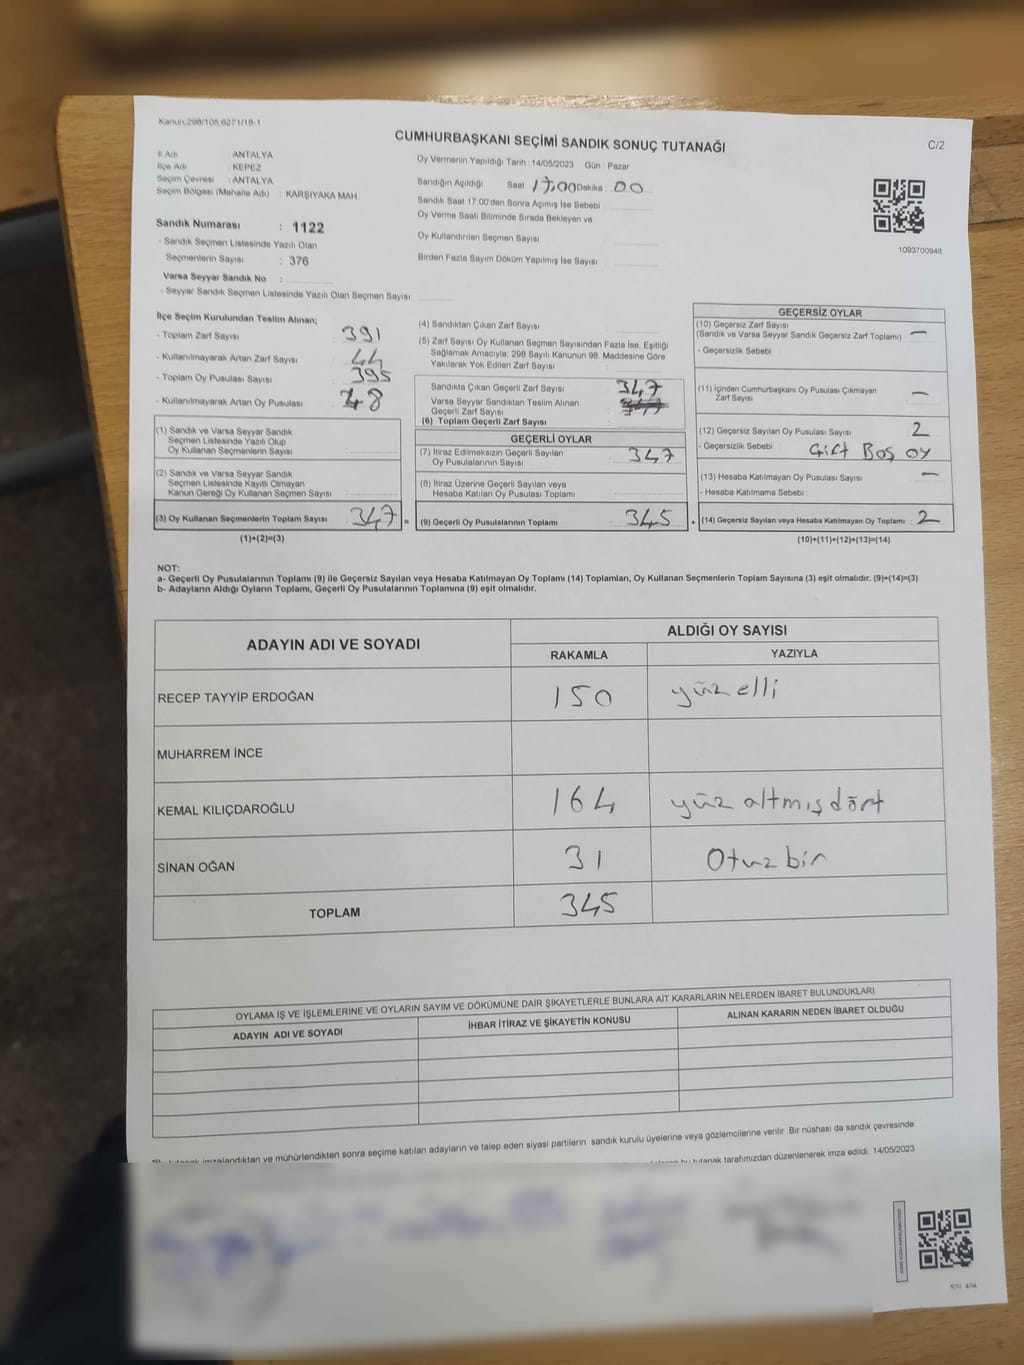 Kanun.298/105,6271/18-1
CUMHURBAŞKANI SEÇİMİ SANDIK SONUÇ TUTANAĞI
C/2
İl Adı : ANTALYA
İlçe Adı : KEPEZ
Seçim Çevresi : ANTALYA
Seçim Bölgesi (Mahalle Adı) : KARŞIYAKA MAH.
Oy Vermenin Yapıldığı Tarih : 14/05/2023 Gün : Pazar
Sandığın Açıldığı Saat 17:00 Dakika : 00
Sandık Saat 17.00'den Sonra Açımış İse Sebebi :
Oy Verme Saati Bitiminde Sırada Bekleyen ve
Oy Kullandırılan Seçmen Sayısı :
Birden Fazla Sayım Döküm Yapılmış İse Sayısı :
1093700948
Sandık Numarası : 1122
- Sandık Seçmen Listesinde Yazılı Olan
Seçmenlerin Sayısı : 376
Varsa Seyyar Sandık No :
- Seyyar Sandık Seçmen Listesinde Yazılı Olan Seçmen Sayısı :
İlçe Seçim Kurulundan Teslim Alınan;
- Toplam Zarf Sayısı : 391
- Kullanılmayarak Artan Zarf Sayısı : 44
- Toplam Oy Pusulası Sayısı : 395
- Kullanılmayarak Artan Oy Pusulası : 48
(1) Sandık ve Varsa Seyyar Sandık
Seçmen Listesinde Yazılı Olup
Oy Kullanan Seçmenlerin Sayısı :
(2) Sandık ve Varsa Seyyar Sandık
Seçmen Listesinde Kayıtlı Olmayan
Kanun Gereği Oy Kullanan Seçmen Sayısı :
(3) Oy Kullanan Seçmenlerin Toplam Sayısı : 347 =
(1)+(2)=(3)
(4) Sandıktan Çıkan Zarf Sayısı :
(5) Zarf Sayısı Oy Kullanan Seçmen Sayısından Fazla İse, Eşitliği
Sağlamak Amacıyla; 298 Sayılı Kanunun 98. Maddesine Göre
Yakılarak Yok Edilen Zarf Sayısı :
Sandıkta Çıkan Geçerli Zarf Sayısı : 347
Varsa Seyyar Sandıktan Teslim Alınan
Geçerli Zarf Sayısı :
(6) Toplam Geçerli Zarf Sayısı :
GEÇERLİ OYLAR
(7) İtiraz Edilmeksizin Geçerli Sayılan
Oy Pusulalarının Sayısı : 347
(8) İtiraz Üzerine Geçerli Sayılan veya
Hesaba Katılan Oy Pusulası Toplamı :
(9) Geçerli Oy Pusulalarının Toplamı : 345 +
GEÇERSİZ OYLAR
(10) Geçersiz Zarf Sayısı
(Sandık ve Varsa Seyyar Sandık Geçersiz Zarf Toplamı) : —
- Geçersizlik Sebebi :
(11) İçinden Cumhurbaşkanı Oy Pusulası Çıkmayan
Zarf Sayısı : —
(12) Geçersiz Sayılan Oy Pusulası Sayısı : 2
- Geçersizlik Sebebi : Çift Boş oy
(13) Hesaba Katılmayan Oy Pusulası Sayısı : —
- Hesaba Katılmama Sebebi :
(14) Geçersiz Sayılan veya Hesaba Katılmayan Oy Toplamı : 2
(10)+(11)+(12)+(13)=(14)
NOT:
a- Geçerli Oy Pusulalarının Toplamı (9) ile Geçersiz Sayılan veya Hesaba Katılmayan Oy Toplamı (14) Toplamları, Oy Kullanan Seçmenlerin Toplam Sayısına (3) eşit olmalıdır. (9)+(14)=(3)
b- Adayların Aldığı Oyların Toplamı, Geçerli Oy Pusulalarının Toplamına (9) eşit olmalıdır.
ADAYIN ADI VE SOYADI
ALDIĞI OY SAYISI
RAKAMLA YAZIYLA
RECEP TAYYİP ERDOĞAN 150 yüz elli
MUHARREM İNCE
KEMAL KILIÇDAROĞLU 164 yüz altmış dört
SİNAN OĞAN 31 Otuz bir
TOPLAM 345
OYLAMA İŞ VE İŞLEMLERİNE VE OYLARIN SAYIM VE DÖKÜMÜNE DAİR ŞİKAYETLERLE BUNLARA AİT KARARLARIN NELERDEN İBARET BULUNDUKLARI
ADAYIN ADI VE SOYADI İHBAR İTİRAZ VE ŞİKAYETİN KONUSU ALINAN KARARIN NEDEN İBARET OLDUĞU
imzalandıktan ve mühürlendikten sonra seçime katılan adayların ve talep eden siyasi partilerin sandık kurulu üyelerine veya gözlemcilerine verilir. Bir nüshası da sandık çevresinde
bu tutanak tarafımızdan düzenlenerek imza edildi. 14/05/2023